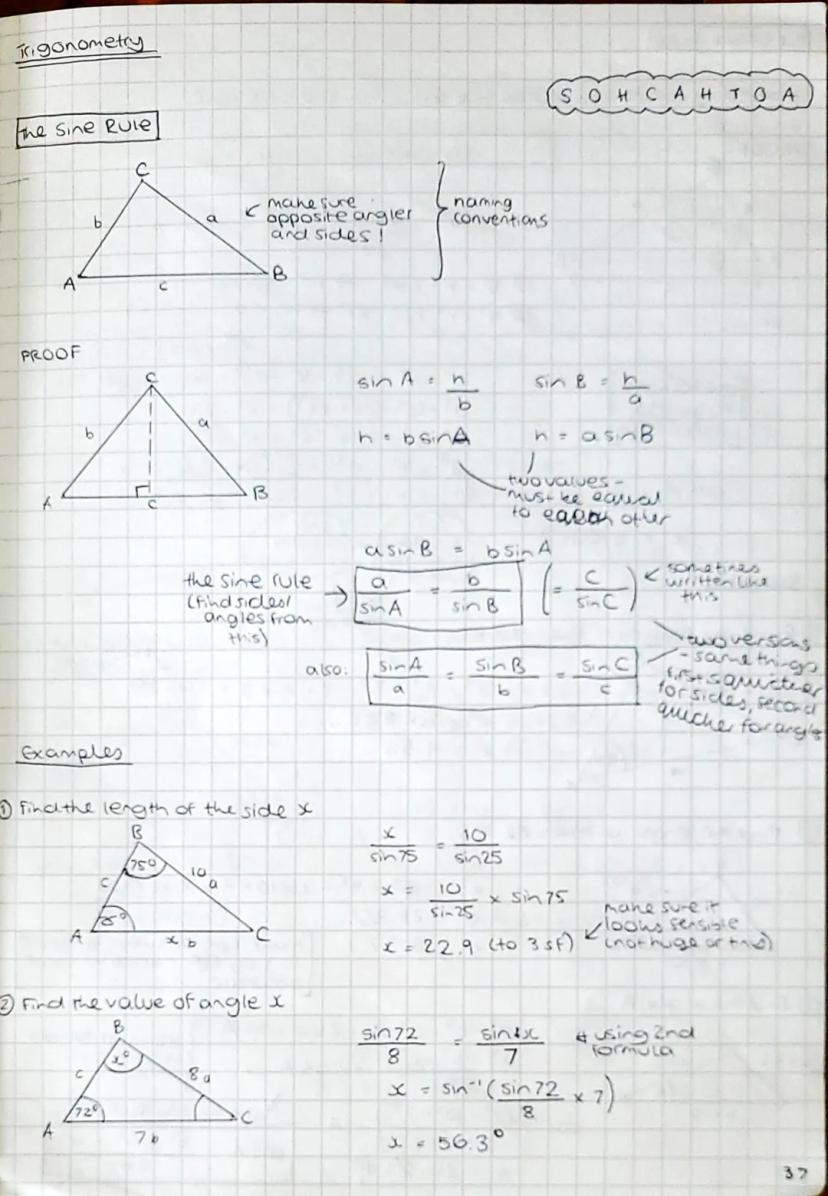 Trigonometry
S O H C A H T O A
The Sine Rule
C
b
a
A
B
c
make sure
opposite angles
and sides!
naming
conventions
PROOF
C
b
a
A
B
c
sin A = h/b
sin B = h/a
h = b sin A
h = a sin B
two values -
must be equal
to each other
a sin B = b sin A
the sine rule
(find sides/
angles from
this)
a/sin A = b/sin B (= c/sin C)
sometimes
written like
this
also:
sin A/a = sin B/b = sin C/c
two versions
- same things
first is quicker
for sides, second
quicker for angles
Examples
① Find the length of the side x
B
75°
10
c
a
25°
A
x b
C
x/sin 75 = 10/sin 25
x = 10/sin 25 × sin 75
x = 22.9 (to 3 sf)
make sure it
looks sensible
(not huge or tiny)
② Find the value of angle x
B
x°
c
8 a
72°
A
7 b
C
sin 72/8 = sin x/7
using 2nd
formula
x = sin⁻¹(sin 72/8 × 7)
x = 56.3°
37